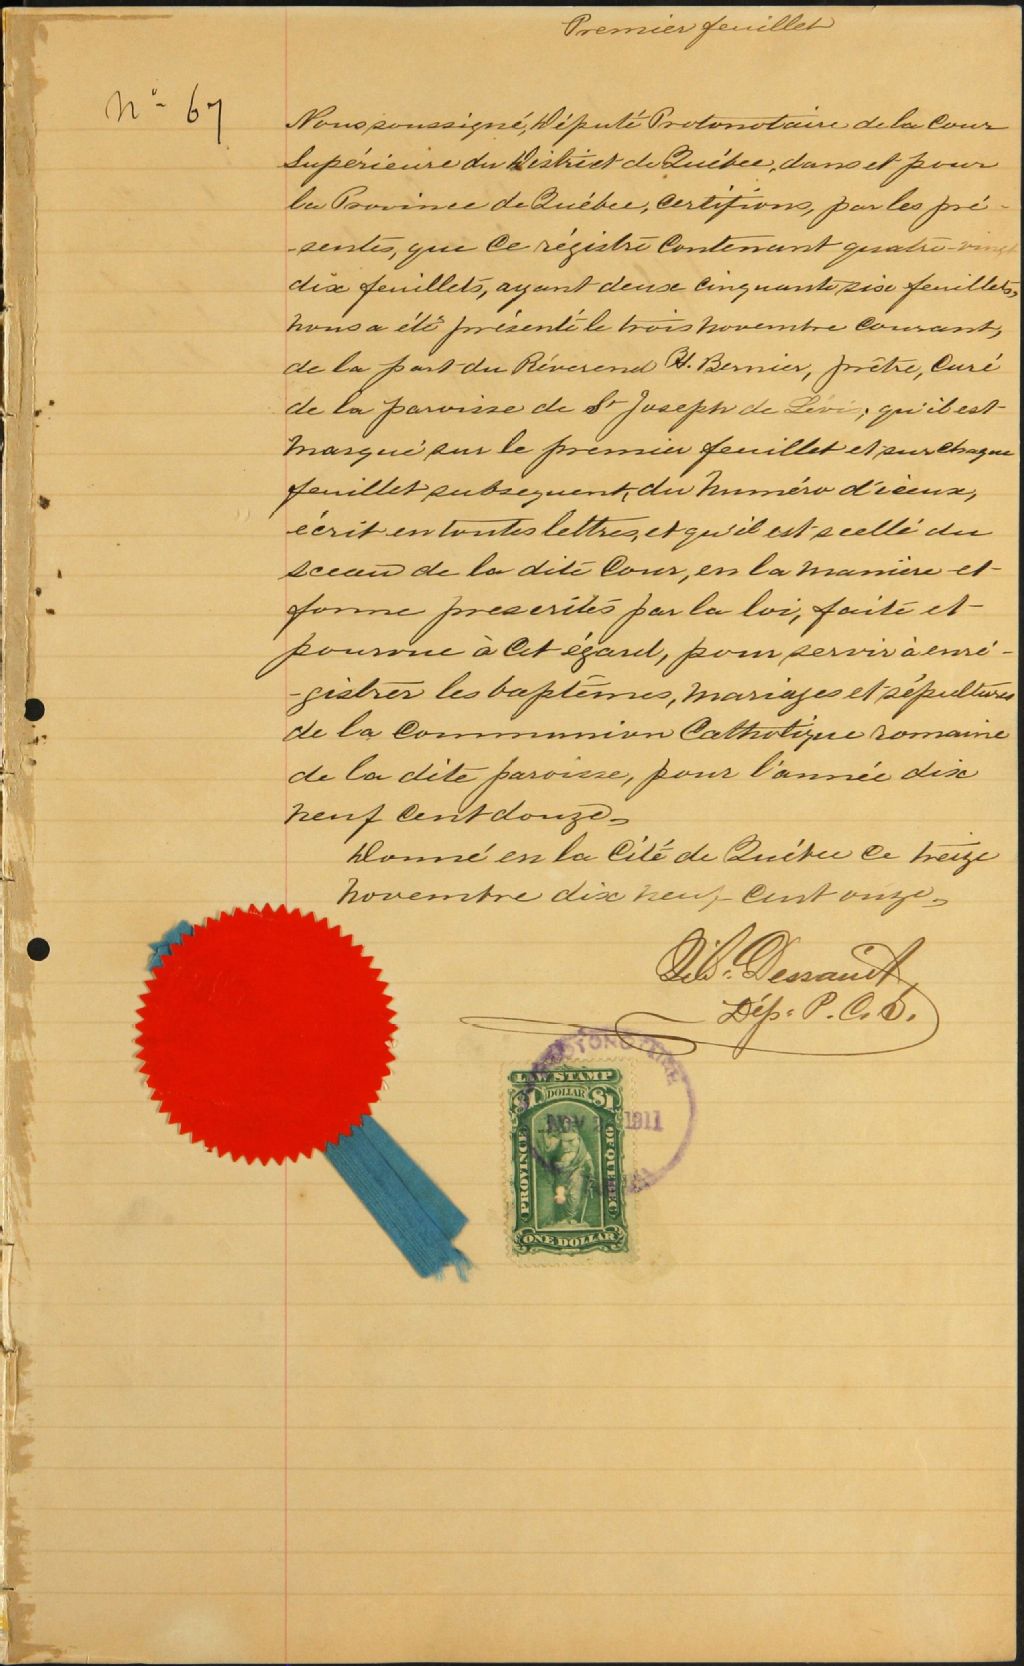 Premier feuillet
No 67
Nous soussigné, Député Protonotaire de la Cour
Supérieure du District de Québec, dans et pour
la Province de Québec, certifions, par les pré-
-sentes, que ce régistre contenant quatre-vingt
dix feuillets, ayant deux cinquante six feuillets,
nous a été présenté le trois novembre courant,
de la part du Révérend H. Bernier, prêtre, curé
de la paroisse de St Joseph de Lévis; qu'il est
marqué sur le premier feuillet et sur chaque
feuillet subsequent, du numéro d'iceux,
écrit en toutes lettres, et qu'il est scellé du
sceau de la dite Cour, en la manière et
forme prescrites par la loi, faite et
pourvue à cet égard, pour servir à enré-
-gistrer les baptêmes, mariages et sépultures
de la Communion Catholique romaine
de la dite paroisse, pour l'année dix
neuf cent douze.
Donné en la Cité de Québec ce treize
novembre dix neuf cent onze.
Dép. P. C. S.
PROTONOTAIRE
LAW STAMP
$1 DOLLAR $1
NOV 1911
PROVINCE OF QUEBEC
ONE DOLLAR